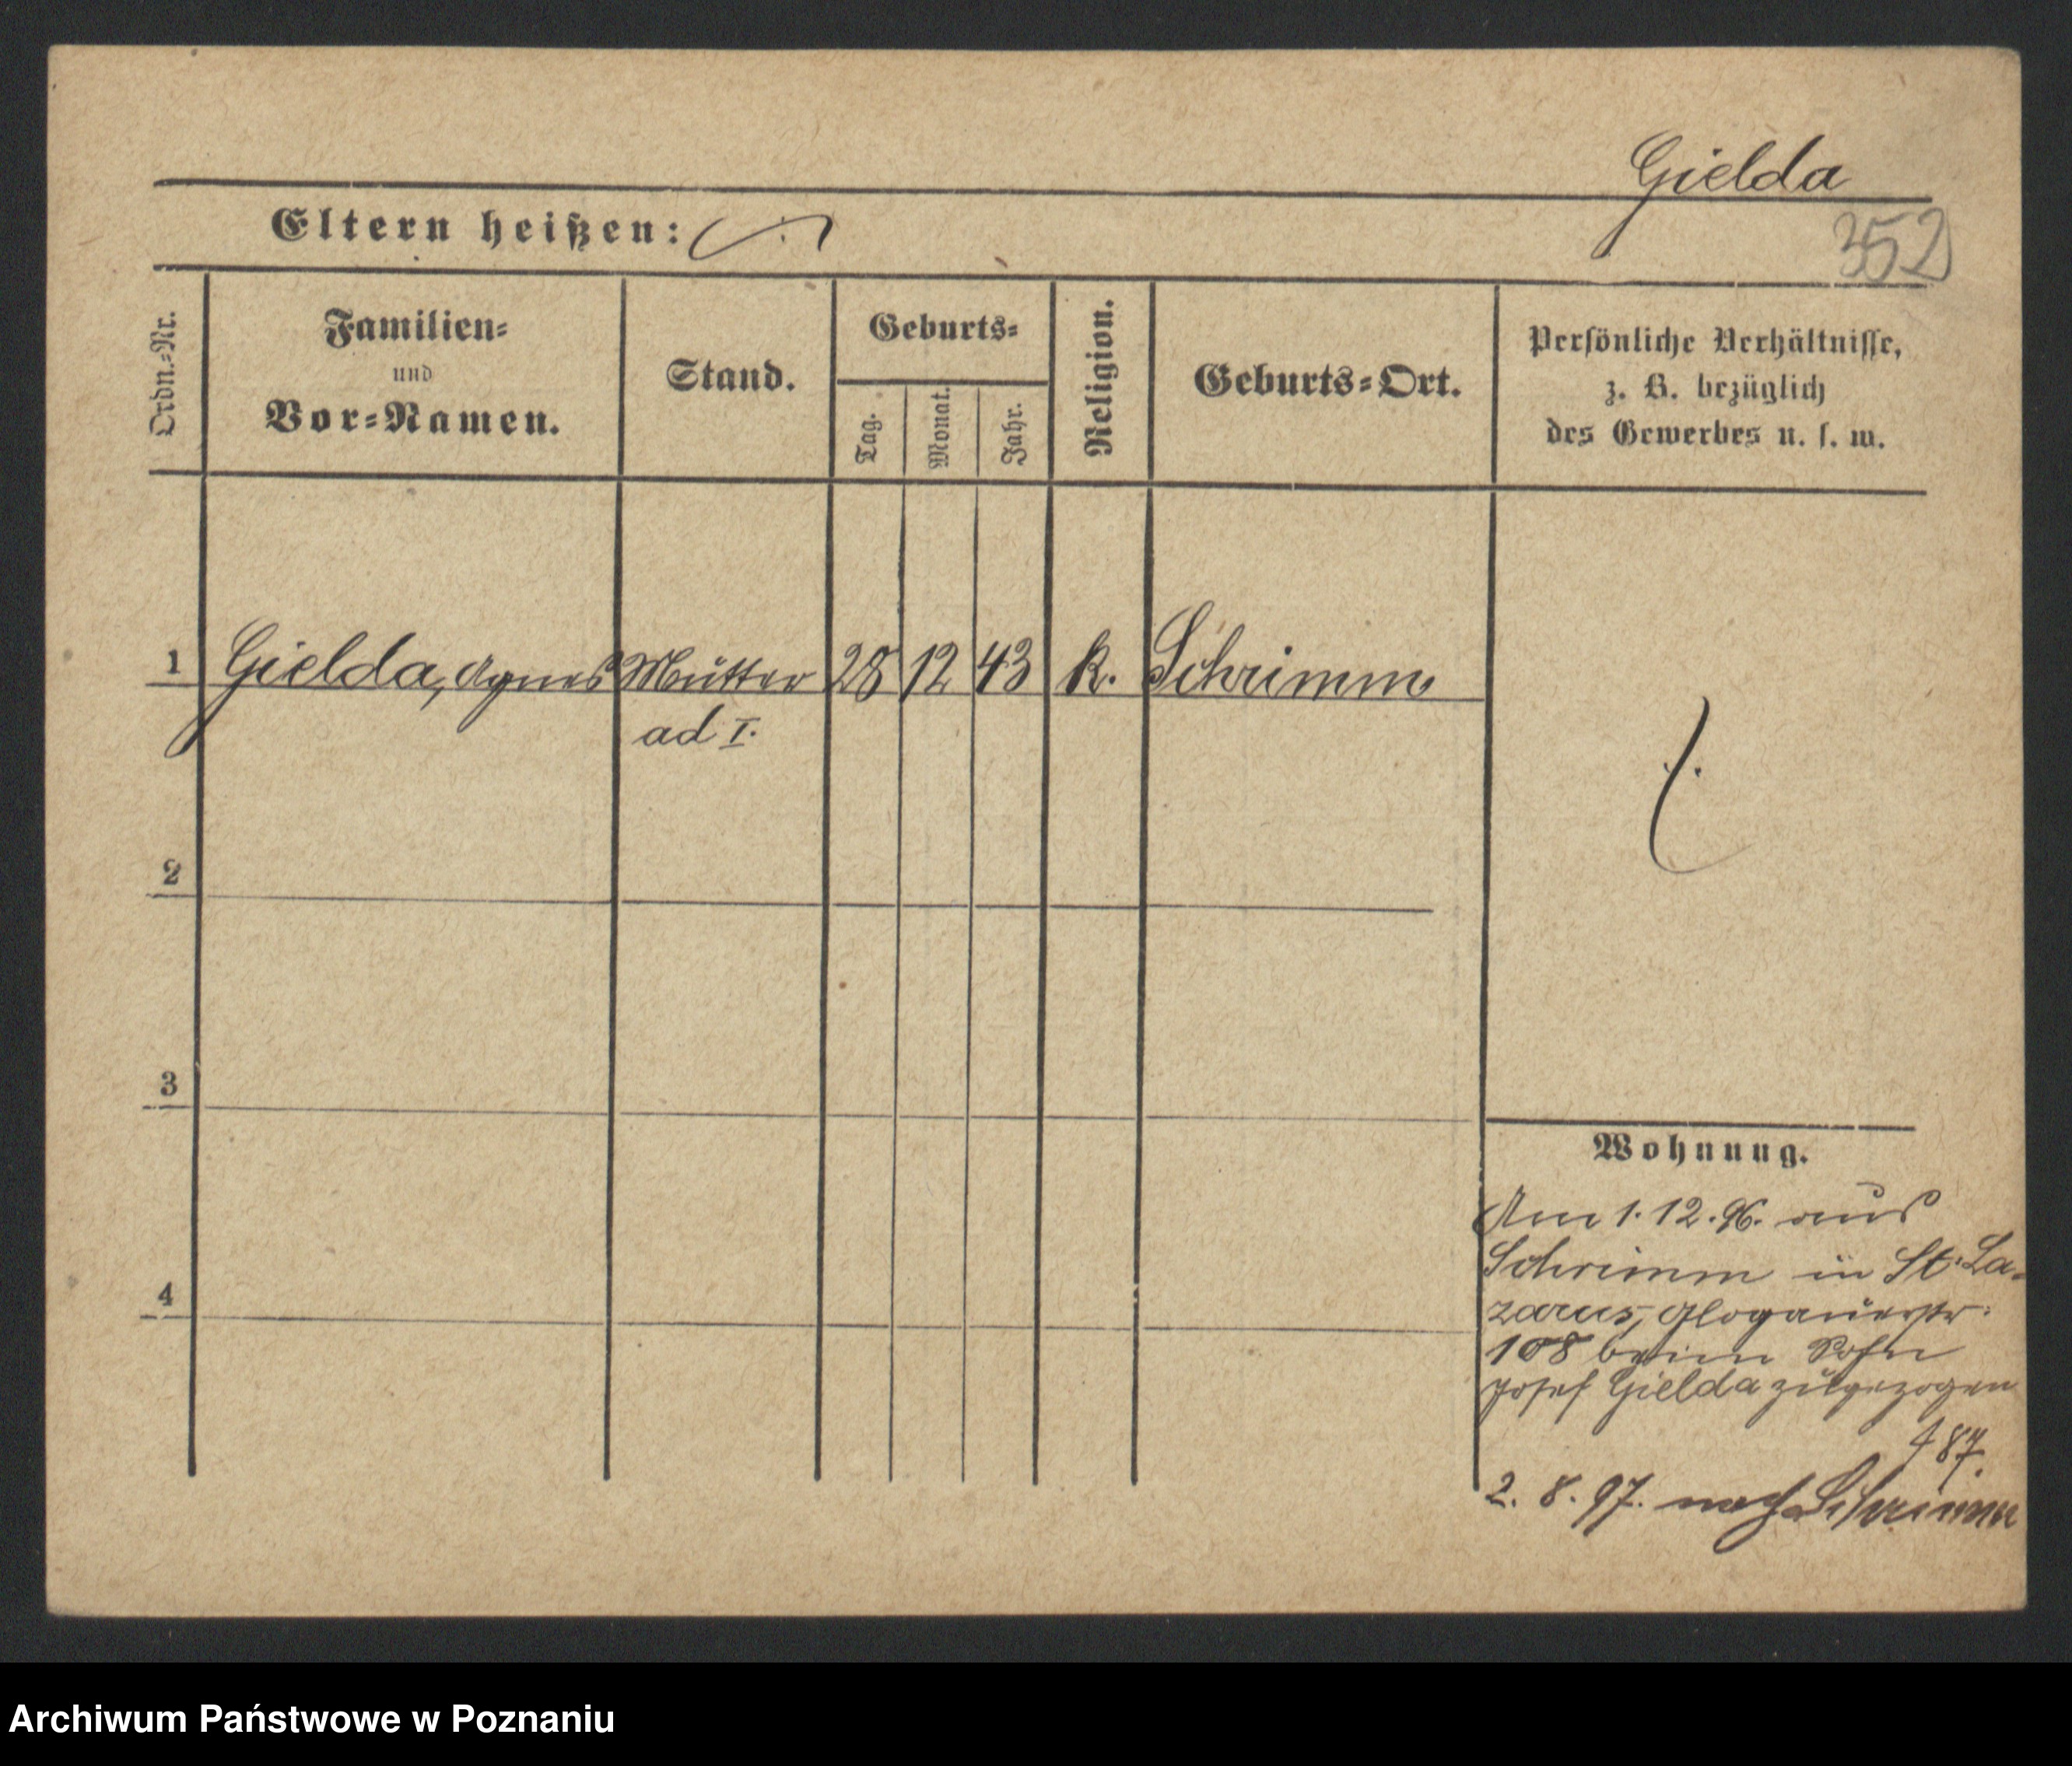 Gielda
352
Eltern heißen: ./.
Ordn.-Nr.
Familien-
und
Vor-Namen.
Stand.
Geburts-
Tag.
Monat.
Jahr.
Religion.
Geburts-Ort.
Persönliche Verhältnisse,
z. B. bezüglich
des Gewerbes u. s. w.
1 Gielda, Agnes Mutter 28 12 43 k. Schrimm
ad I.
./.
2
3
4
Wohnung.
Am 1. 12. 96. aus
Schrimm in St. La-
zarus, Glogauerstr.
108 beim Sohn
Josef Gielda zugezogen
487.
2. 8. 97. nach Schrimm
Archiwum Państwowe w Poznaniu